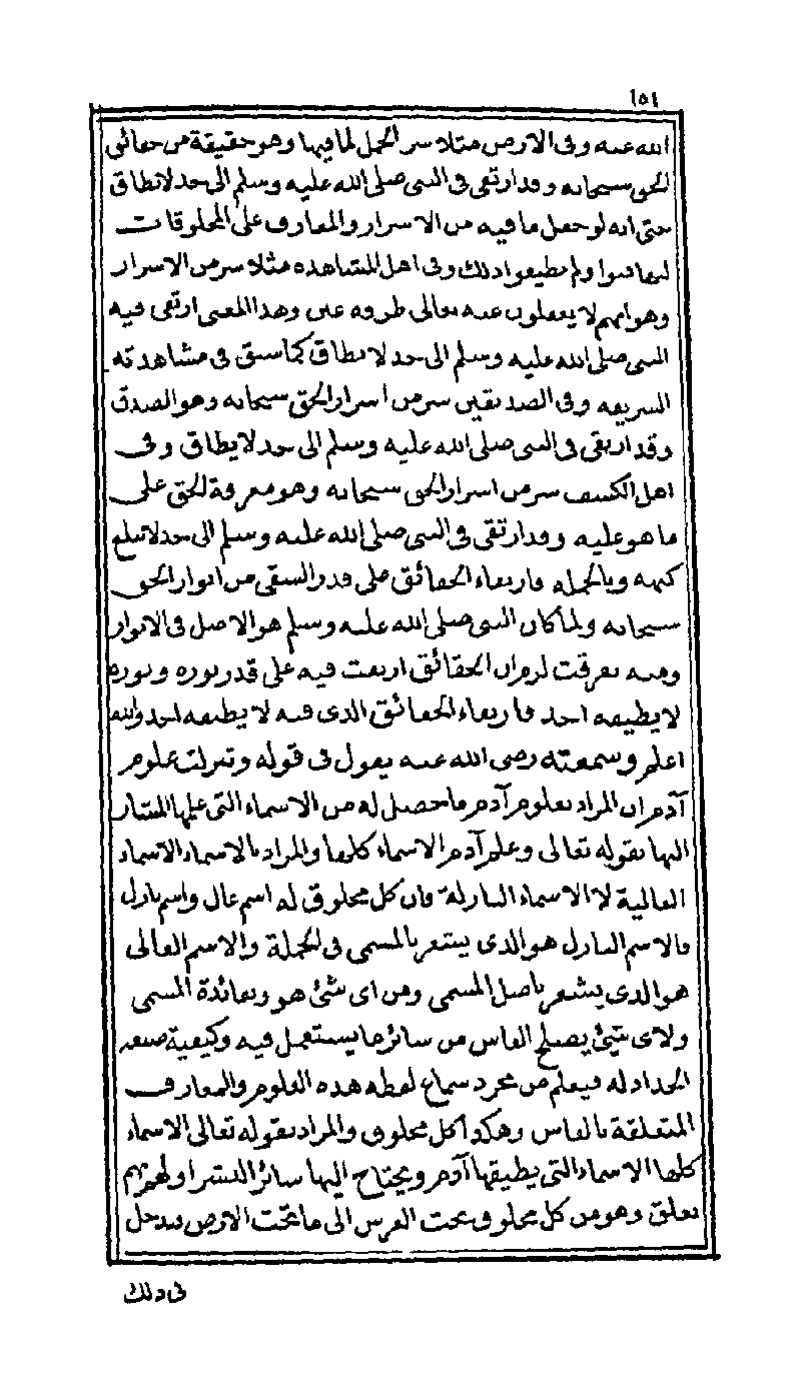 ١٥١
الله عنه وفى الارض مثلا سر الحمل لما فيها وهو حقيقة من حقائق
الحق سبحانه وقد ارتقى فى النبى صلى الله عليه وسلم الى حد لا يطاق
حتى انه لو جعل ما فيه من الاسرار والمعارف على المخلوقات
لتهافتوا ولم يطيقوا ذلك وفى اهل المشاهدة مثلا سر من الاسرار
وهو انهم لا يغفلون عنه تعالى طرفة عين وهذا المعنى ارتقى فيه
النبى صلى الله عليه وسلم الى حد لا يطاق كما سبق فى مشاهدته
الشريفه وفى الصديقين سر من اسرار الحق سبحانه وهو الصدق
وقد ارتقى فى النبى صلى الله عليه وسلم الى حد لا يطاق وفى
اهل الكشف سر من اسرار الحق سبحانه وهو معرفة الحق على
ما هو عليه وقد ارتقى فى النبى صلى الله عليه وسلم الى حد لا تبلغ
كنهه وبالجمله فارتقاء الحقائق على قدر السقى من انوار الحق
سبحانه ولما كان النبى صلى الله عليه وسلم هو الاصل فى الانوار
ومنه تفرقت لزم ان الحقائق ارتقت فيه على قدر نوره ونوره
لا يطيقه احد فارتقاء الحقائق الذى فيه لا يطيقه احد والله
اعلم وسمعته رضى الله عنه يقول فى قوله وتنزلت علوم
آدم ان المراد بعلوم آدم ما حصل له من الاسماء التى علمها المشار
اليها بقوله تعالى وعلم آدم الاسماء كلها والمراد بالاسماء الاسماء
العالية لا الاسماء النازلة فان كل مخلوق له اسم عال واسم نازل
فالاسم النازل هو الذى يشعر بالمسمى فى الجملة والاسم العالى
هو الذى يشعر باصل المسمى ومن اى شئ هو وبفائدة المسمى
ولاى شئ يصلح الفاس من سائر ما يستعمل فيه وكيفية صنعه
الحداد له فيعلم من مجرد سماع لفظه هذه العلوم والمعارف
المتعلقة بالفاس وهكذا كل مخلوق والمراد بقوله تعالى الاسماء
كلها الاسماء التى يطيقها آدم ويحتاج اليها سائر البشر او لهم بهم
تعلق وهو من كل مخلوق تحت العرش الى ما تحت الارض فيدخل
فى ذلك